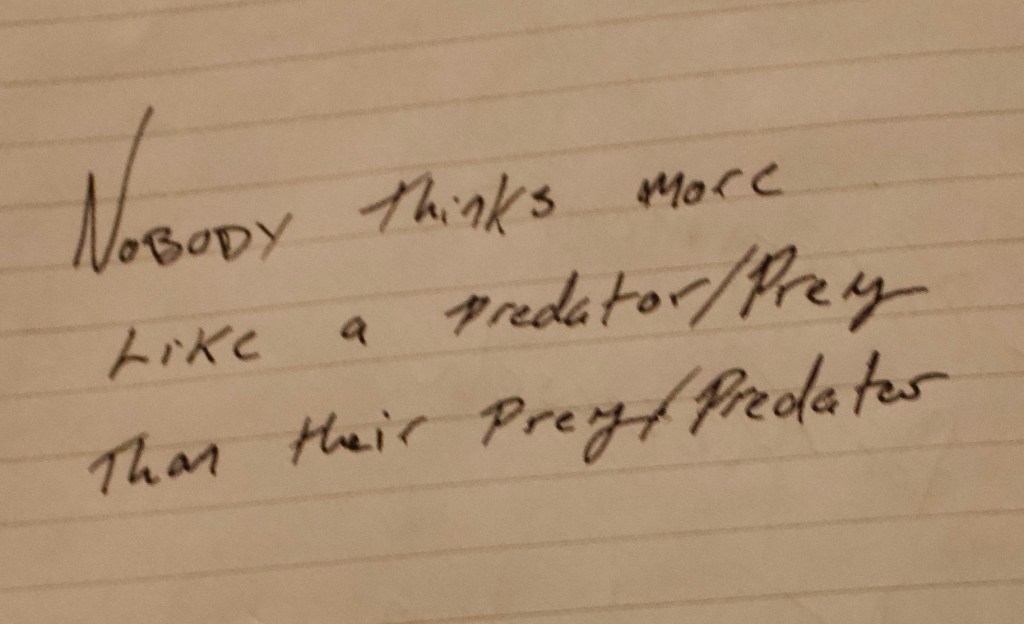 NOBODY thinks more
Like a predator/Prey
Than their Prey/Predator